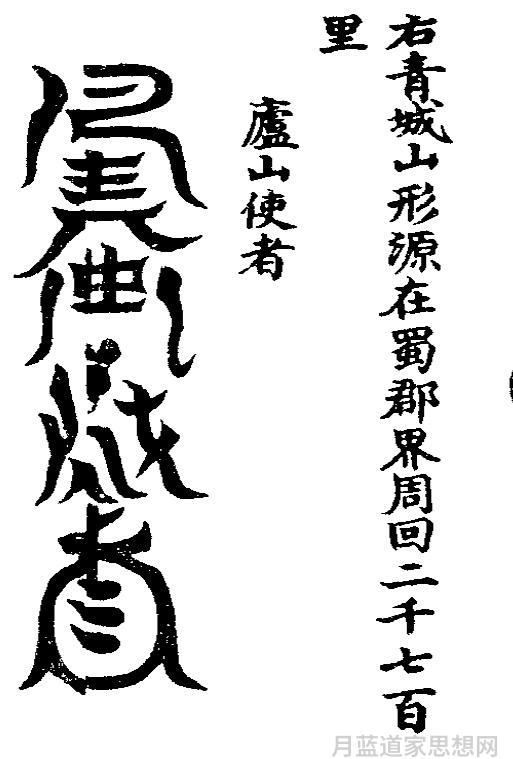 右青城山形源在蜀郡界周回二千七百
里
廬山使者
月蓝道家思想网